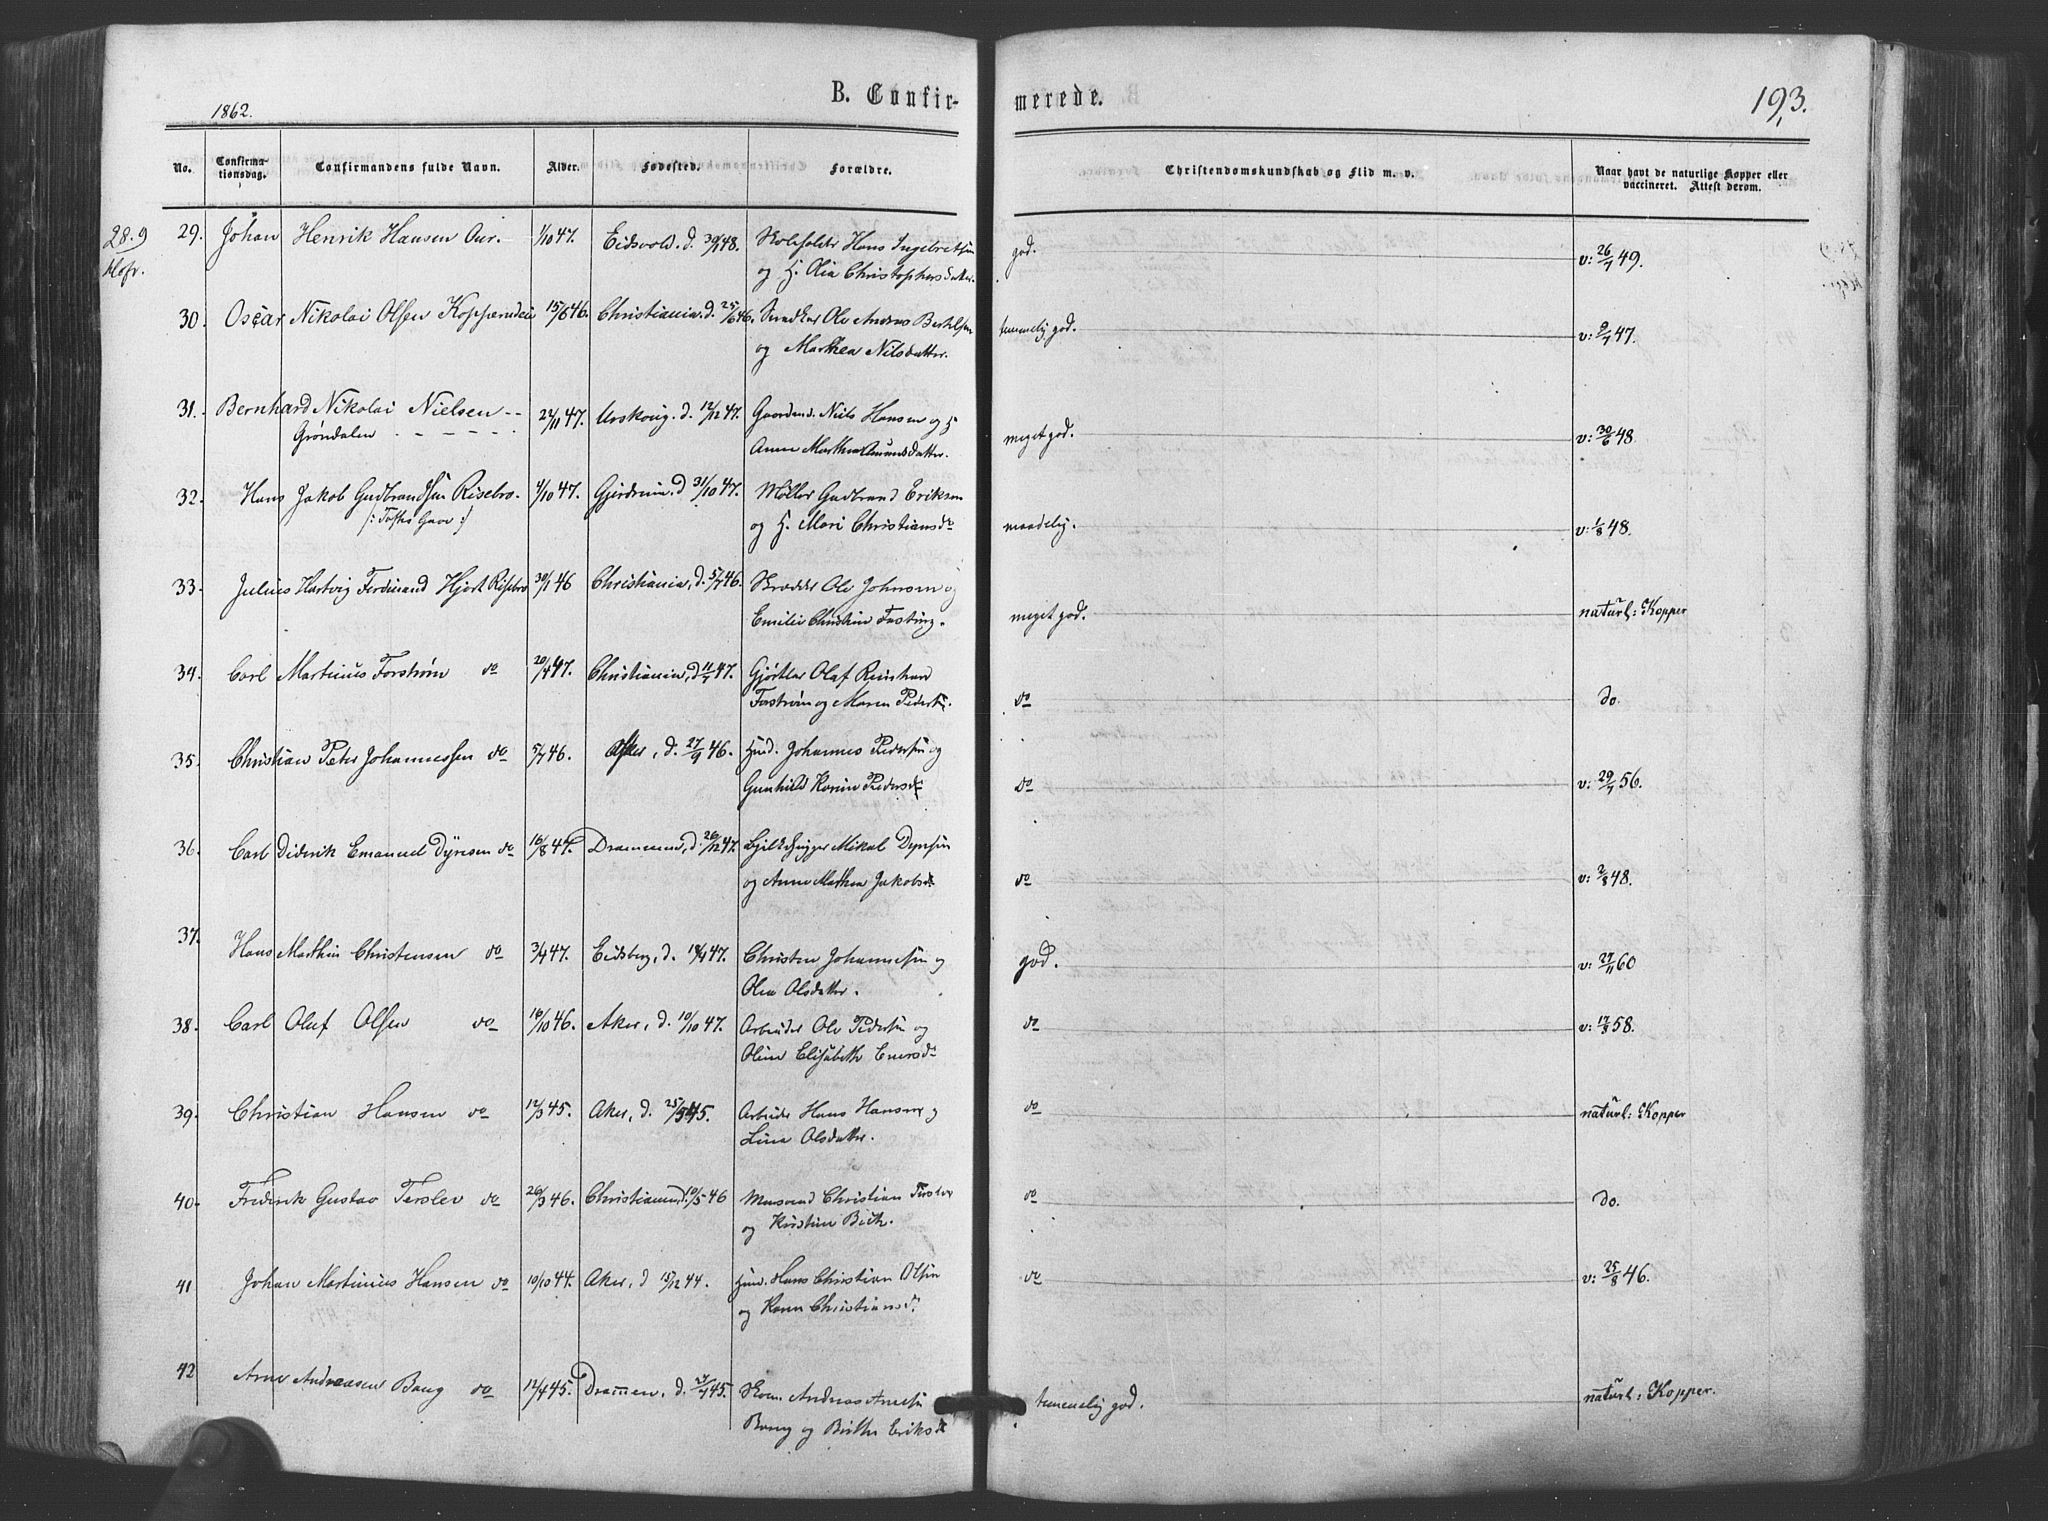 B. Confir- merede.
193.
1862.
No. Confirma- tionsdag. Confirmandens fulde Navn. Alder. Fødested. Forældre. Christendomskundskab og Flid m. v. Naar havt de naturlige Kopper eller vaccineret. Attest derom.
28.9
29. Johan Henrik Hansen Aur. 1/10 47. Eidsvold. d. 30/1 48. Hans Ingebretsen god. v: 26/7 49.
og H. Olia Christophersdatter.
30. Oscar Nikolai Olsen 15/6 46. Christiania. d. 25/6 46. Ole Andreas Bertelsen temmelig god. v: 9/7 47.
og Marthea Nilsdatter.
31. Bernhard Nikolai Nielsen 22/11 47. Urskoug. d. 12/12 47. Gaardmd. Niels Hansen og H meget god. v: 30/6 48.
Grøndalen Anne Marthea Amundsdatter.
32. Hans Jakob Gudbrandsen Risebro. 4/10 47. Gjerdrum. d 31/10 47. Møller Gudbrand Eriksen maadelig. v: 1/8 48.
og H. Mari Christiansd
33. Julius Hartvig Ferdinand Hjort Risebro 30/1 46 Christiania, d. 5/7 46. Skrædder Ole Johnsen og meget god. naturl: Kopper
Emilie Christine Fasting.
34. Carl Martinius Forstrøm do 20/4 47. Christiania, d 11/7 47. Gjørtler Olaf Reinhard do do.
Forstrøm og Maren Peders
35. Christian Peter Johannessen do 5/7 46. Asker, d. 27/9 46. Huusmd. Johannes Pedersen og do v: 29/7 56.
Gunhild Karine Pedersd
36. Carl Diderik Emanuel Dyresen do 16/8 47. Drammen, d. 26/12 47. Mikal Dyresen do v: 2/8 48.
og Anne Mathea Jakobsd
37. Hans Marthin Christensen do 3/4 47. Eidsberg, d. 18/4 47. Christen Johannesen og god. v: 27/11 60
Olea Olsdatter.
38. Carl Oluf Olsen do 16/10 46. Aker, d. 10/10 47. Arbeider Ole Pedersen og do v: 17/3 58.
Oline Elisabeth Enersd
39. Christian Hansen do 12/3 45. Aker, d. 25/5 45. Arbeider Hans Hansen og do naturl: Kopper
Lina Olsdatter.
40. Frederik Gustav Terslev do 26/3 46. Christiania, d. 10/5 46 Christian Terslev do do.
og Kirstine Bich.
41 Johan Martinius Hansen do 10/10 44. Aker, d 15/12 44. Huusmd. Hans Christian Olsen do v: 25/8 46.
og Karen Christiansd
42 Arne Andreasen Bang do 12/4 45. Drammen, d. 27/7 45. Andreas Arnesen temmelig god. naturl: Kopper.
Bang og Birthe Eriksd